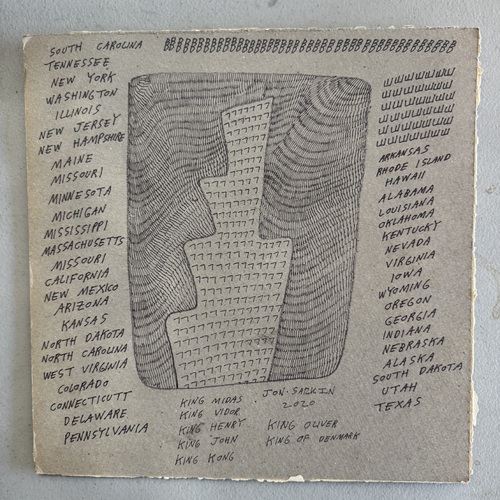 SOUTH CAROLINA
TENNESSEE
NEW YORK
WASHINGTON
ILLINOIS
NEW JERSEY
NEW HAMPSHIRE
MAINE
MISSOURI
MINNESOTA
MICHIGAN
MISSISSIPPI
MASSACHUSETTS
MISSOURI
CALIFORNIA
NEW MEXICO
ARIZONA
KANSAS
NORTH DAKOTA
NORTH CAROLINA
WEST VIRGINIA
COLORADO
CONNECTICUTT
DELAWARE
PENNSYLVANIA
ARKANSAS
RHODE ISLAND
HAWAII
ALABAMA
LOUISIANA
OKLAHOMA
KENTUCKY
NEVADA
VIRGINIA
IOWA
WYOMING
OREGON
GEORGIA
INDIANA
NEBRASKA
ALASKA
SOUTH DAKOTA
UTAH
TEXAS
KING MIDAS
KING VIDOR
KING HENRY
KING JOHN
KING KONG
JON SARKIN
2020
KING OLIVER
KING OF DENMARK